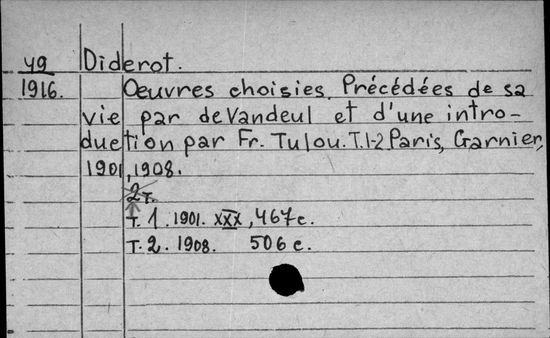 49
1916.
Diderot.
Oeuvres choisies. Précédées de sa
vie par de Vandeul et d'une intro-
duction par Fr. Tulou. T.1-2 Paris, Garnier,
1901, 1908.
2 т.
т. 1. 1901. XXX, 467 c.
т. 2. 1908. 506 c.